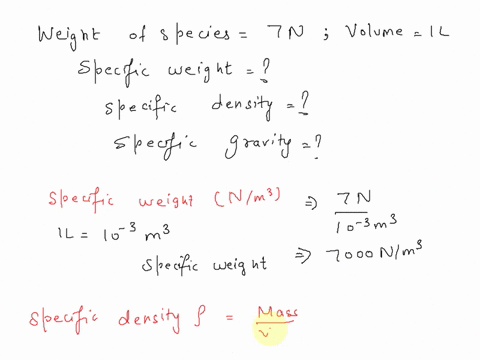 Weight of species = 7N ; Volume = 1L
Specific weight = ?
Specific density = ?
Specific gravity = ?
Specific weight (N/m³) ⇒ 7N / 10⁻³ m³
1L = 10⁻³ m³
Specific weight ⇒ 7000 N/m³
Specific density ρ = Mass / v